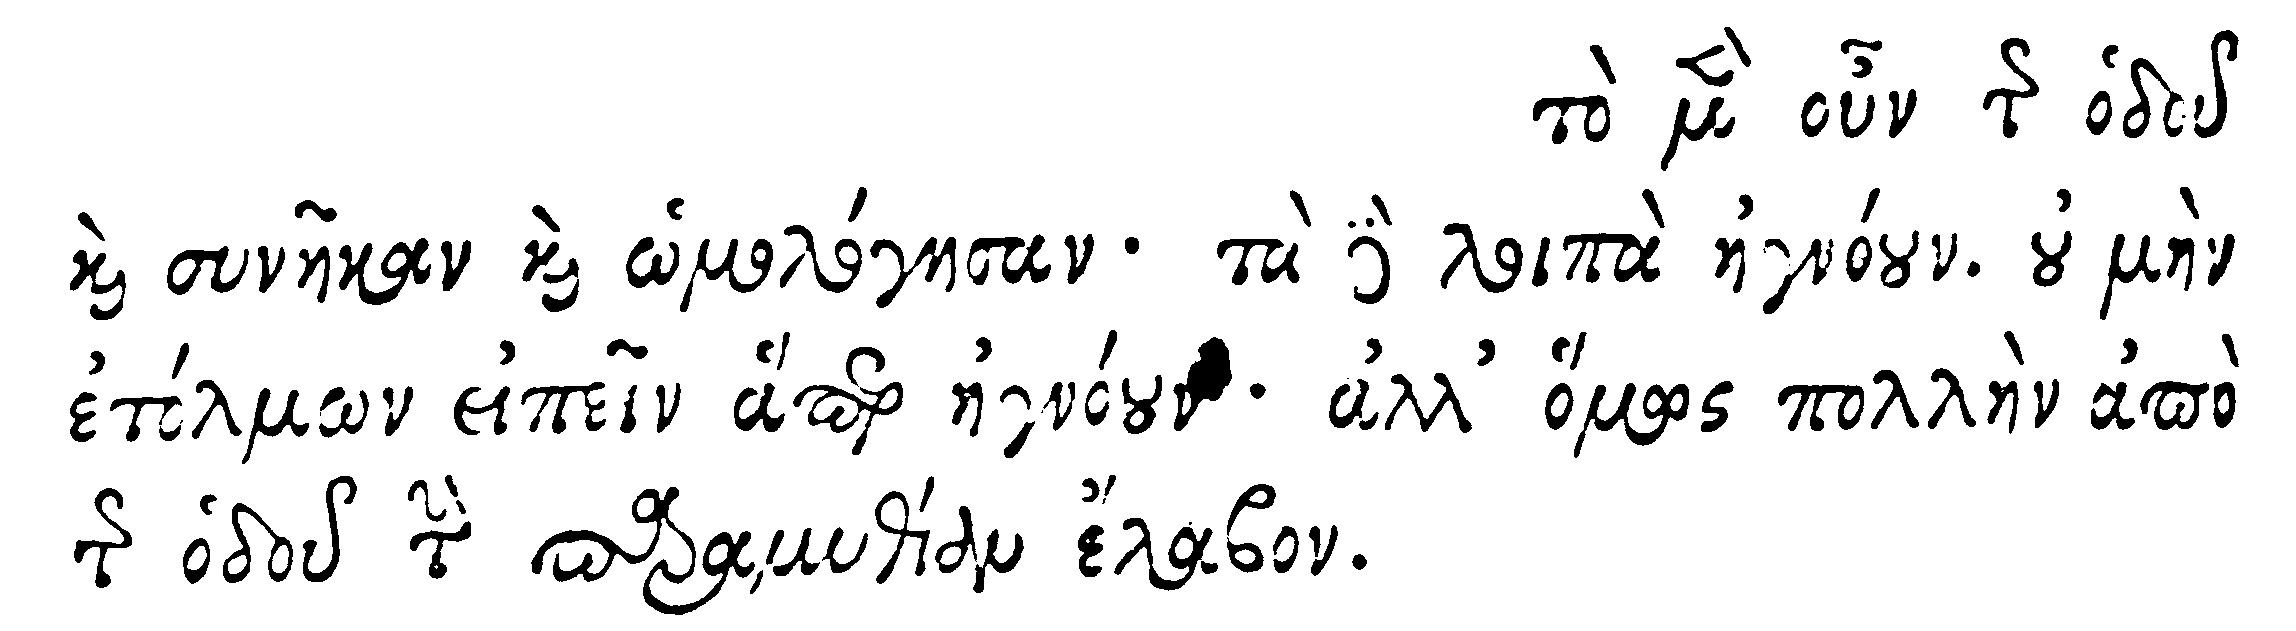 τὸ μὲν οὖν τῆς ὁδοῦ
καὶ συνῆκαν καὶ ὡμολόγησαν· τὰ δὲ λοιπὰ ἠγνόουν. οὐ μὴν
ἐτόλμων εἰπεῖν ἅπερ ἠγνόουν· ἀλλ’ ὅμως πολλὴν ἀπὸ
τῆς ὁδοῦ τὴν παραμυθίαν ἔλαβον.